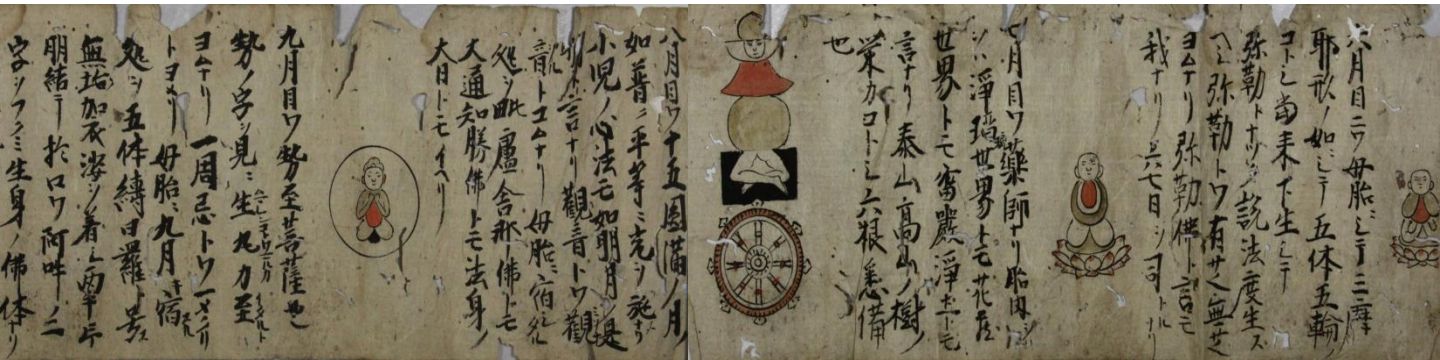 六月目ニワ母胎ニシテ三摩
耶形ノ如ニシテ五体五輪ノ
コトシ当来下生シテ
弥勒トナリ説法度生ス
ヘシ弥勒トワ有サヘ無サヘ
ヨムナリ弥勒佛ト言モ
我ナリ六七日ヲ司トルナリ
七月目ワ薬師ナリ胎内ヲ
ハ浄瑠璃世界トモ花蔵
世界トモ密嚴浄土トモ
言ナリ泰山高山ノ樹ノ
栄カコトシ六根悉備
也
八月目ワ十五圓満ノ月ノ
如普ク平等ニ光ヲ施ナリ
小児ノ心法モ如明月是
観音ト言ナリ觀音トワ觀
音トヨムナリ母胎ニ宿ル
処ヲ毗盧舎那佛トモ
大通知勝佛トモ法身ノ
大日トモイヘリ
九月目ワ勢至菩薩也
勢ノ字ヲ見ニ生九力至
ヨムナリ一周忌トワ一メクリ
トヨメリ母胎ニ九月宿
処ヲ五体縛曰羅ト号ス
無垢加衣婆ヲ着シ両手
明結テ於口ワ阿吽ノ二
字ヲフクミ生身ノ佛体ナリ